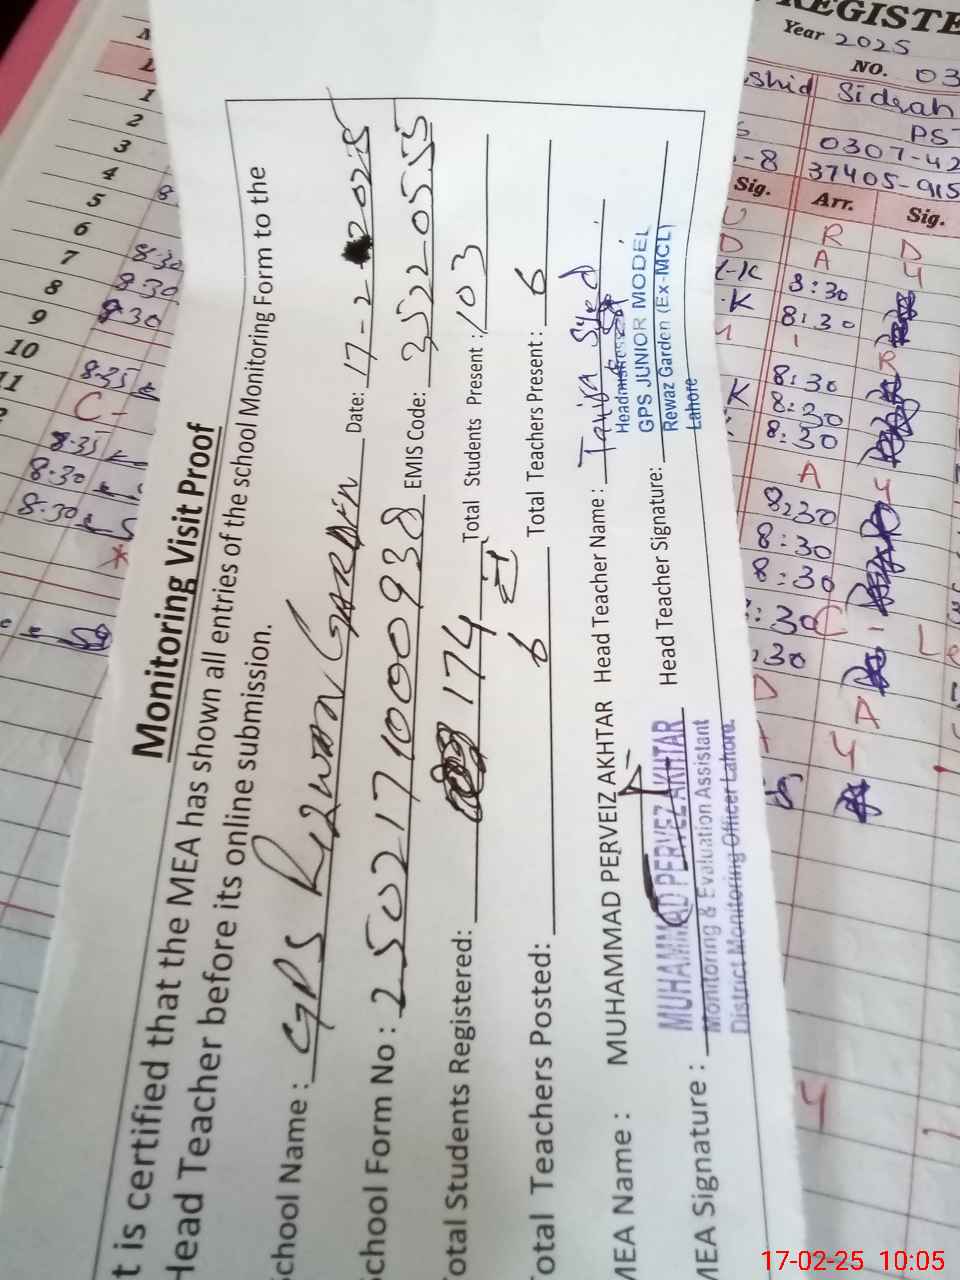 Monitoring Visit Proof
t is certified that the MEA has shown all entries of the school Monitoring Form to the
Head Teacher before its online submission.
chool Name : GPS Rizwan GARDEN Date: 17-2-2025
chool Form No : 2502171000938 EMIS Code: 35220555
otal Students Registered: 174 Total Students Present : 103
otal Teachers Posted: 6 Total Teachers Present : 6
MEA Name : MUHAMMAD PERVEIZ AKHTAR Head Teacher Name :
MEA Signature : Head Teacher Signature:
MUHAMMAD PERVEZ AKHTAR
Monitoring & Evaluation Assistant
District Monitoring Officer Lahore.
Headmistress
GPS JUNIOR MODEL
Rewaz Garden (Ex-MCL)
Lahore
REGISTE
Year 2025
NO. 03
shid Sidrah
PST
0307-42
-8 37405-915
Sig. Arr. Sig.
U R D
D A Y
8:30
8:30
8:30
8:30
8:30
A
8:30
8:30
8:30
:30
:30
1
2
3
4
5
6
7 8:30
8 8:30
9 8:30
10
11 8:35
C-
8:35
8:30
8:30
17-02-25 10:05